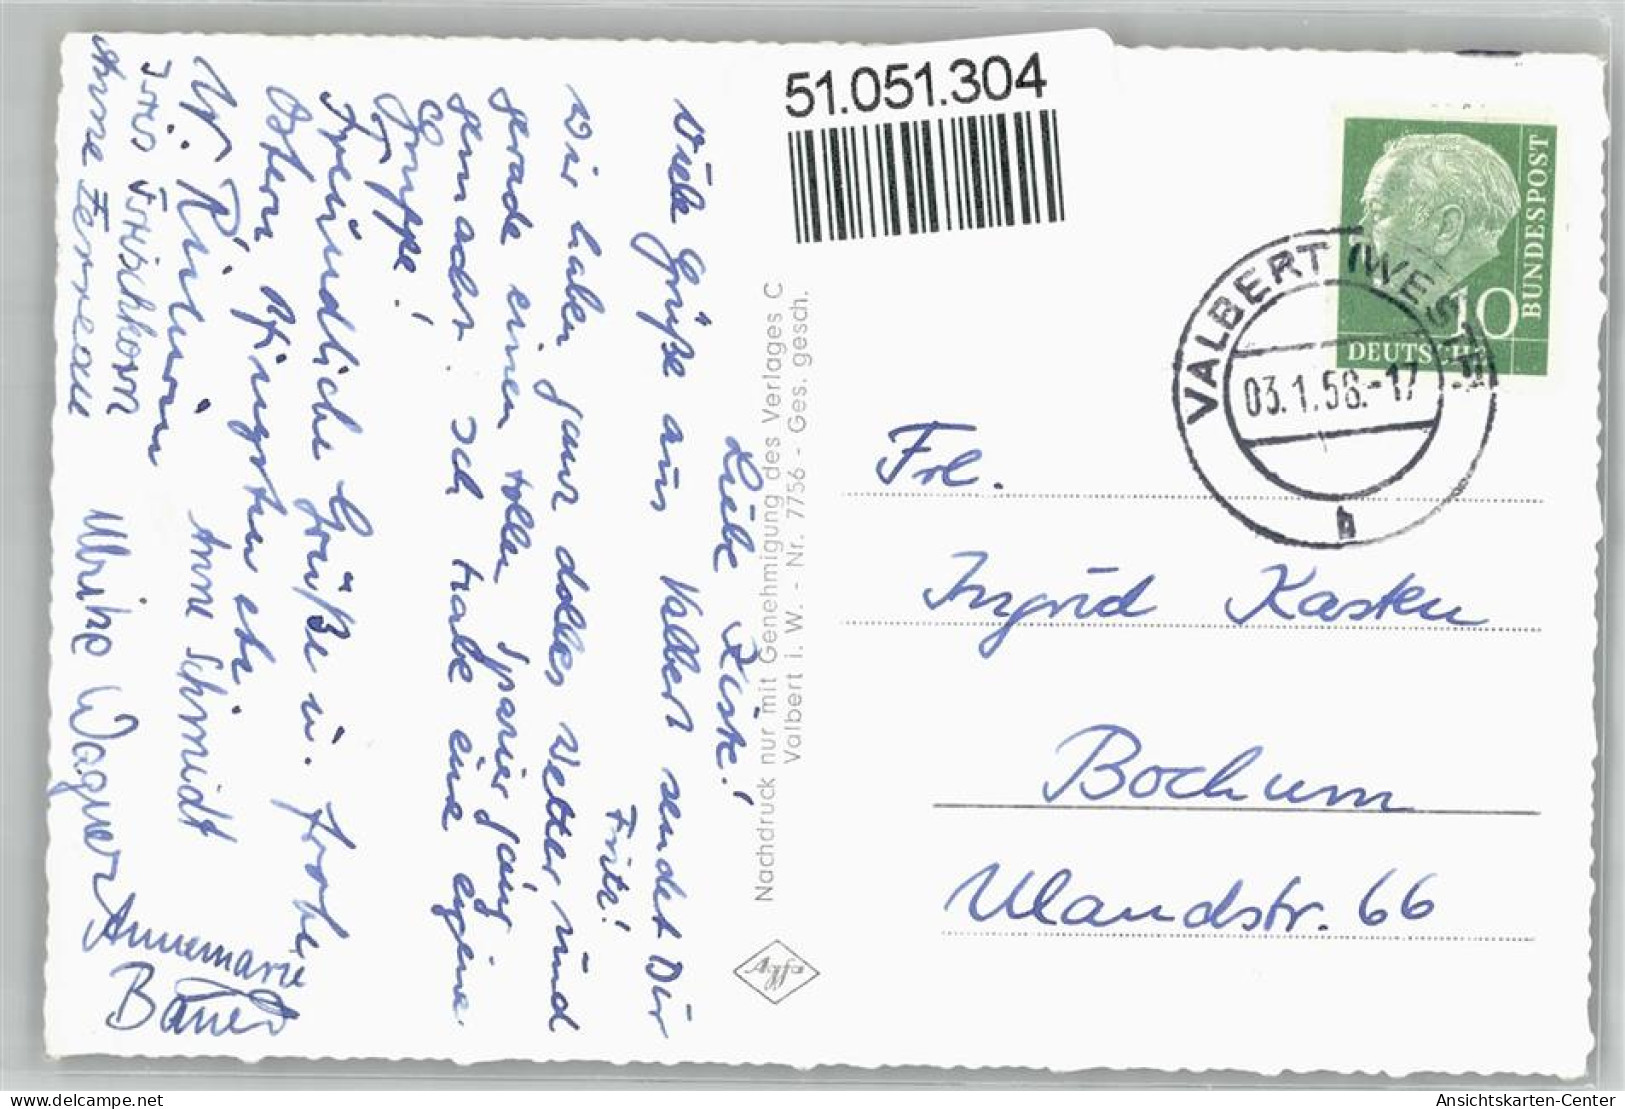 51.051.304
BUNDESPOST
10
DEUTSCHE
VALBERT (WESTF)
03.1.58.-17
Frl.
Ingrid Kasten
Bochum
Ulandstr. 66
Nachdruck nur mit Genehmigung des Verlages C
Valbert i. W. - Nr. 7756 - Ges. gesch.
Agfa
Liebe Kiste!
Viele Grüße aus Valbert sendet Dir
Fritz!
Wir haben ganz dolles Wetter und
gerade einen tollen Spaziergang
gemacht. Ich habe eine eigene
Gruppe!
Freundliche Grüße u. frohe
Ostern Pfingsten etc.
Anne Schmidt
Ulrike Wagner
Annemarie
Bauer
Ansichtskarten-Center